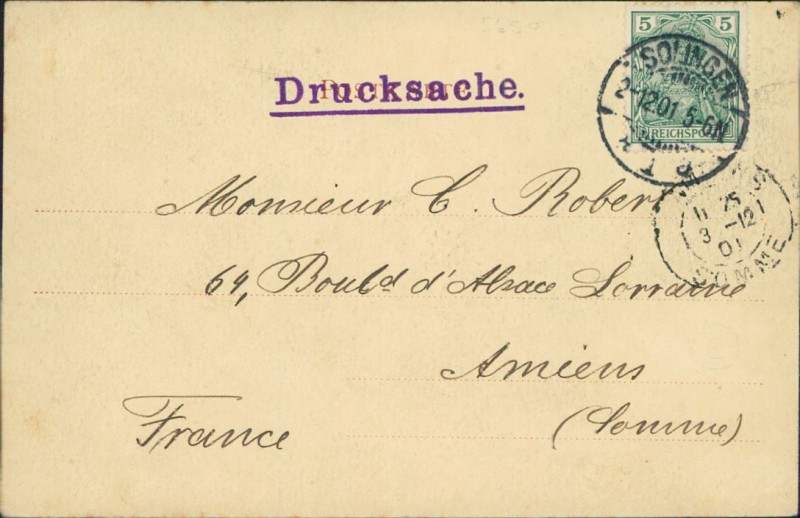 5 5
REICHSPOST
SOLINGEN
2-12 01 5-6N
Drucksache.
Monsieur C. Robert
25
3 -12
01
SOMME
64, Bould d'Alsace Lorraine
Amiens
(Somme)
France